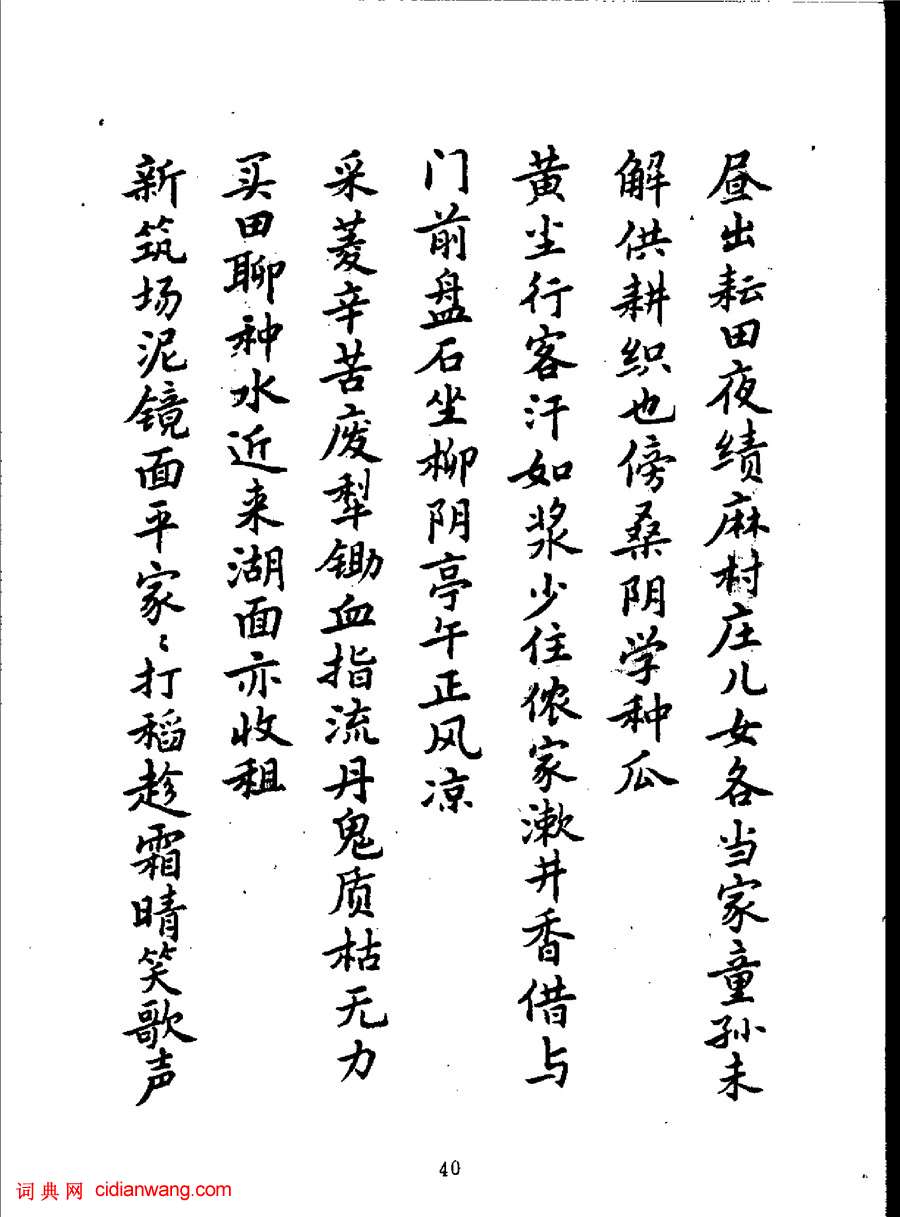 昼出耘田夜绩麻村庄儿女各当家童孙未
解供耕织也傍桑阴学种瓜
黄尘行客汗如浆少住侬家漱井香借与
门前盘石坐柳阴亭午正风凉
采菱辛苦废犁锄血指流丹鬼质枯无力
买田聊种水近来湖面亦收租
新筑场泥镜面平家〻打稻趁霜晴笑歌声
40
词典网 cidianwang.com